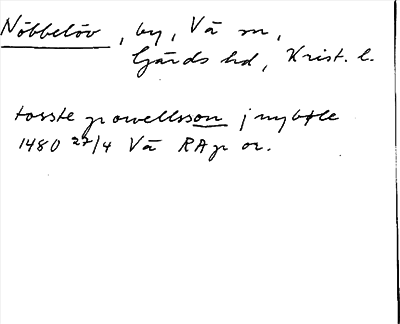 Nöbbelöv, by, Vä sn,
Gärds hd, Krist. l.
tosste powellsson j nybøle
1480 27/4 Vä RAp or.